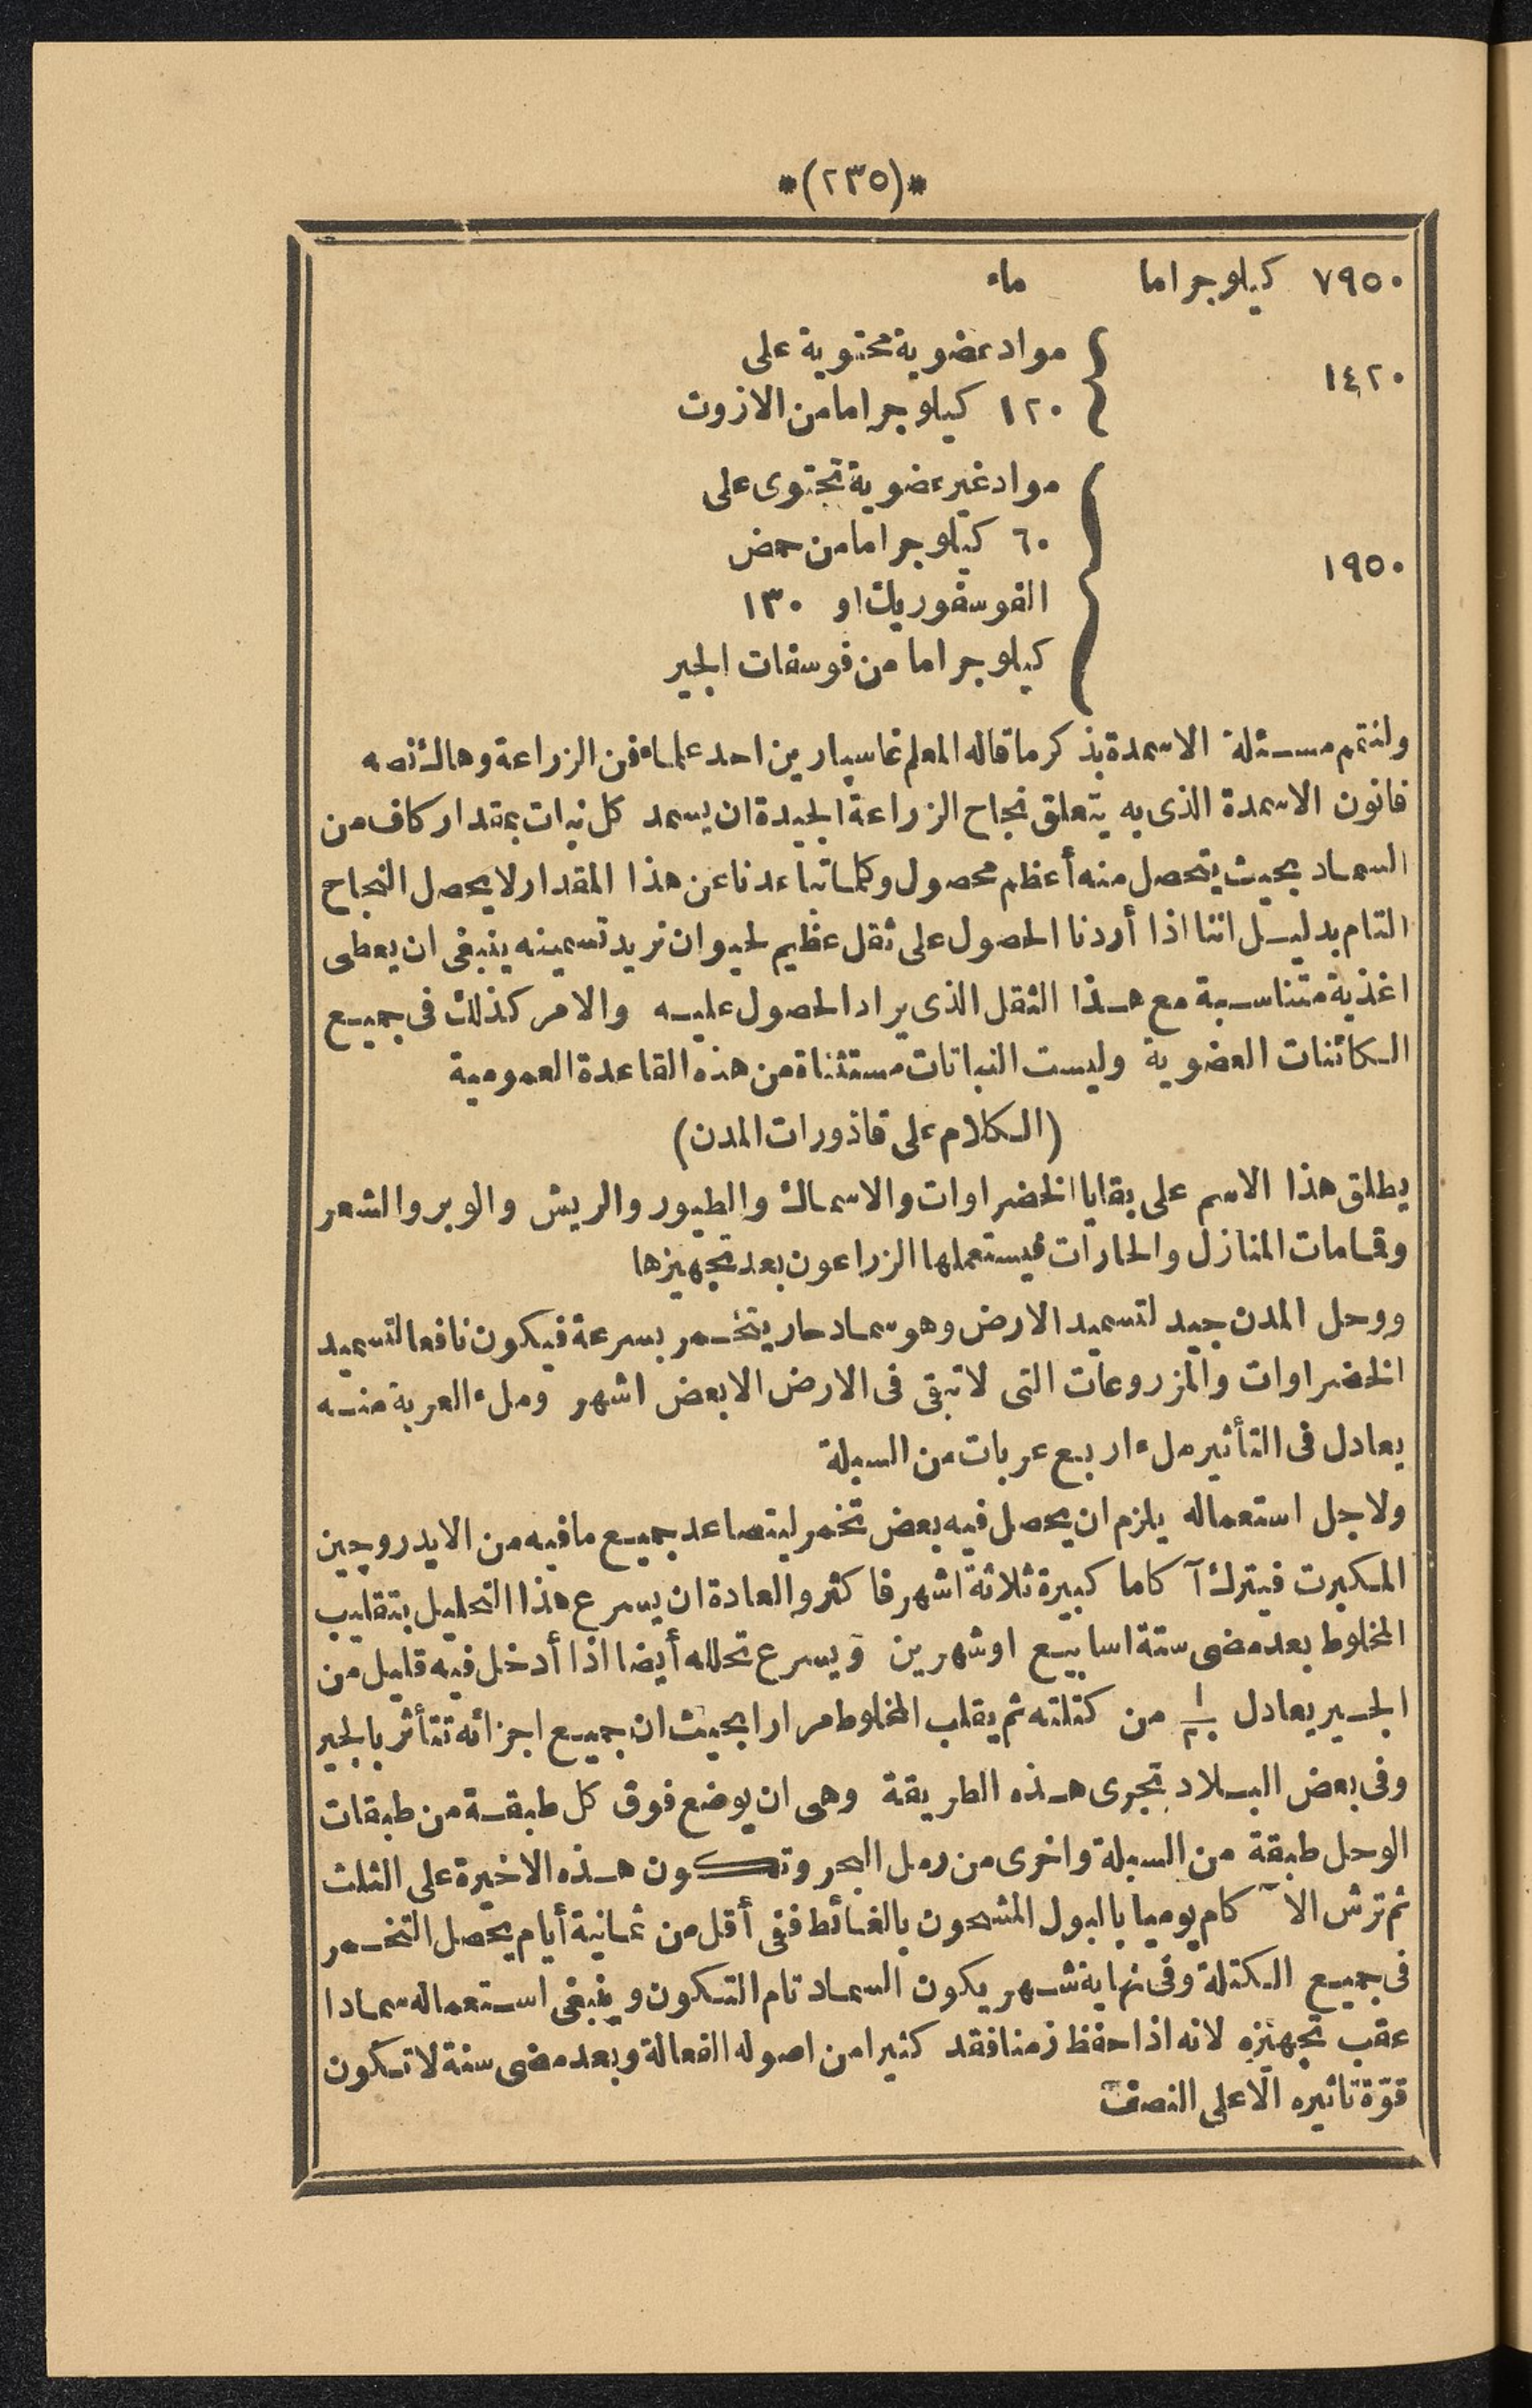 *(٢٣٥)*
٧٩٥٠ كيلوجراما ماء
١٤٢٠ { مواد عضوية محتوية على
١٢٠ كيلوجراما من الازوت
مواد غير عضوية تحتوى على
٦٠ كيلوجراما من حمض
١٩٥٠ {
الفوسفوريك او ١٣٠
كيلوجراما من فوسفات الجير
ولنتمم مسئلة الاسمدة بذكر ما قاله المعلم غاسپارين احد علماء فن الزراعة وهاك نصه
قانون الاسمدة الذى به يتعلق نجاح الزراعة الجيدة ان يسمد كل نبات بمقدار كاف من
السماد بحيث يتحصل منه أعظم محصول وكلما تباعدنا عن هذا المقدار لا يحصل النجاح
التام بدليل اننا اذا أردنا الحصول على ثقل عظيم لحيوان نريد تسمينه ينبغى ان يعطى
اغذية متناسبة مع هذا الثقل الذى يراد الحصول عليه والامر كذلك فى جميع
الكائنات العضوية وليست النباتات مستثناة من هذه القاعدة العمومية
(الكلام على قاذورات المدن)
يطلق هذا الاسم على بقايا الخضراوات والاسماك والطيور والريش والوبر والشعر
وقمامات المنازل والحارات فيستعملها الزراعون بعد تجهيزها
ووحل المدن جيد لتسميد الارض وهو سماد حار يتخمر بسرعة فيكون نافعا لتسميد
الخضراوات والمزروعات التى لا تبقى فى الارض الا بعض اشهر وملء العربة منه
يعادل فى التأثير ملء اربع عربات من السبلة
ولاجل استعماله يلزم ان يحصل فيه بعض تخمر ليتصاعد جميع ما فيه من الايدروچين
المكبرت فيترك آكاما كبيرة ثلاثة اشهر فاكثر والعادة ان يسرع هذا التحليل بتقليب
المخلوط بعد مضى ستة اسابيع او شهرين ويسرع تحلله أيضا اذا أدخل فيه قليل من
الجير يعادل من كتلته ثم يقلب المخلوط مرارا بحيث ان جميع اجزائه تتأثر بالجير
وفى بعض البلاد تجرى هذه الطريقة وهى ان يوضع فوق كل طبقة من طبقات
الوحل طبقة من السبلة واخرى من رمل البحر وتكون هذه الاخيرة على الثلث
ثم ترش الآكام يوميا بالبول المشحون بالغائط ففى أقل من ثمانية أيام يحصل التخمر
فى جميع الكتلة وفى نهاية شهر يكون السماد تام التكون وينبغى استعماله سمادا
عقب تجهيزه لانه اذا حفظ زمنا فقد كثيرا من اصوله الفعالة وبعد مضى سنة لا تكون
قوّة تاثيره الّا على النصف